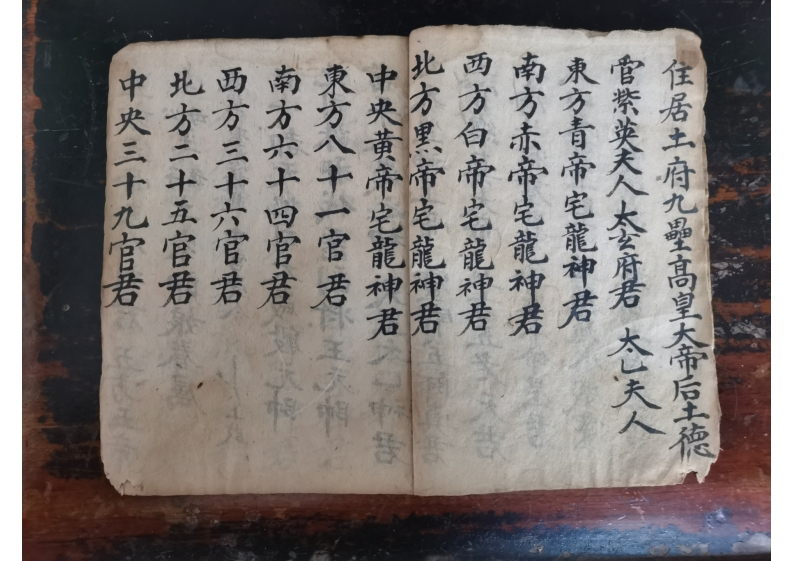 住居土府九壘高皇大帝后土德
宮紫英夫人太玄府君 太乙夫人
東方青帝宅龍神君
南方赤帝宅龍神君
西方白帝宅龍神君
北方黑帝宅龍神君
中央黃帝宅龍神君
東方八十一官君
南方六十四官君
西方三十六官君
北方二十五官君
中央三十九官君